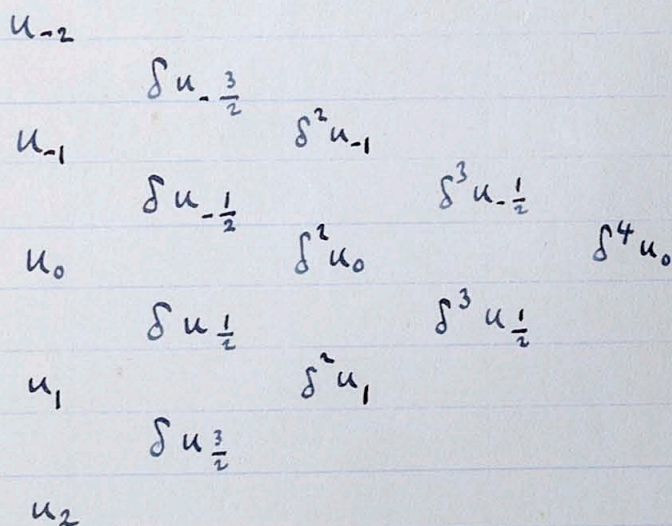 u₋₂
δu₋³⁄₂
u₋₁ δ²u₋₁
δu₋¹⁄₂ δ³u₋¹⁄₂
u₀ δ²u₀ δ⁴u₀
δu¹⁄₂ δ³u¹⁄₂
u₁ δ²u₁
δu³⁄₂
u₂